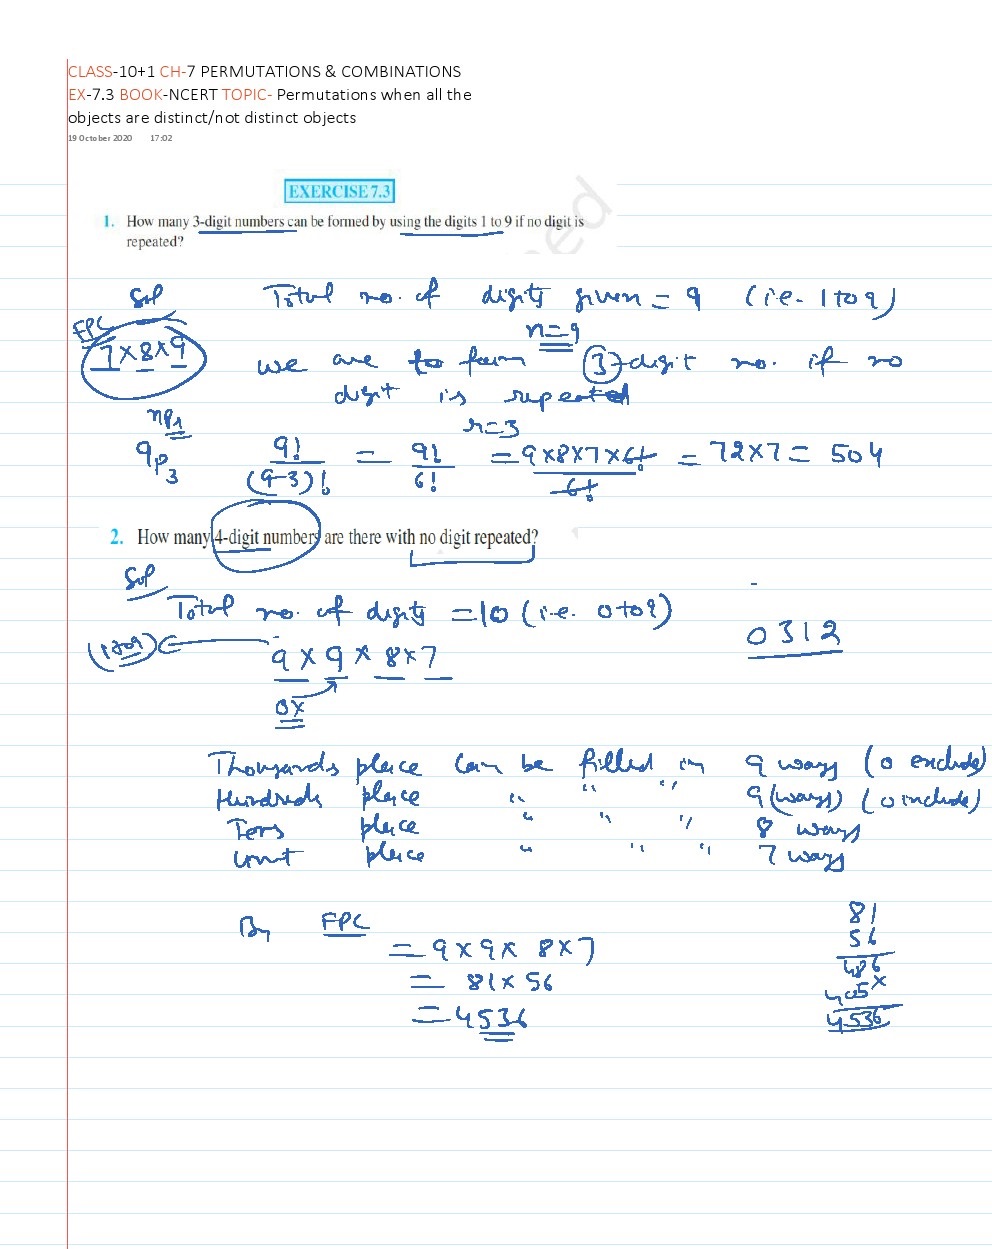 CLASS-10+1 CH-7 PERMUTATIONS & COMBINATIONS
EX-7.3 BOOK-NCERT TOPIC- Permutations when all the
objects are distinct/not distinct objects
19 October 2020 17:02
EXERCISE 7.3
1. How many 3-digit numbers can be formed by using the digits 1 to 9 if no digit is
repeated?
Sol Total no. of digits given = 9 (i.e. 1 to 9)
n=9
FPC
7×8×9
we are to form 3-digit no. if no
digit is repeated
r=3
nPr
9P3 9!/(9-3)! = 9!/6! = 9×8×7×6!/6! = 72×7 = 504
2. How many 4-digit numbers are there with no digit repeated?
Sol
Total no. of digits = 10 (i.e. 0 to 9)
0312
(1 to 9) 9 × 9 × 8 × 7
0×
Thousands place can be filled in 9 ways (0 exclude)
Hundreds place " " " 9 (ways) (0 include)
Tens place " " " 8 ways
Unit place " " " 7 ways
By FPC
= 9×9×8×7
= 81×56
= 4536
81
56
486
405×
4536